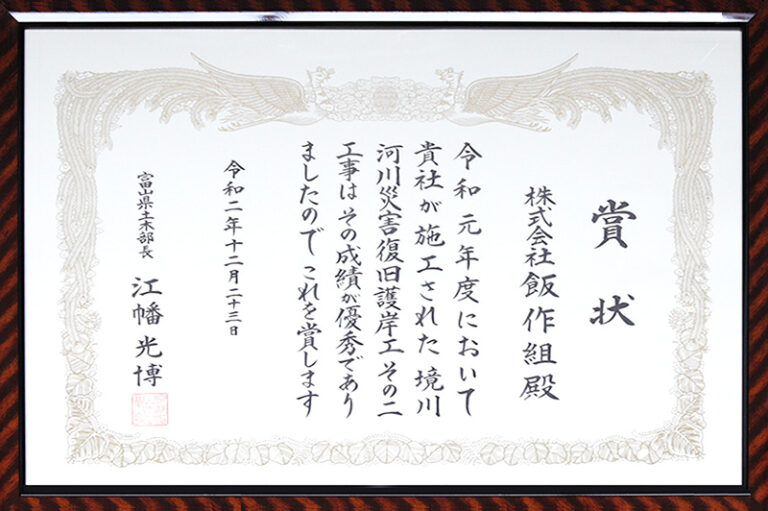 賞状
株式会社飯作組殿
令和元年度において
貴社が施工された境川
河川災害復旧護岸工その二
工事はその成績が優秀であり
ましたのでこれを賞します
令和二年十二月二十三日
富山県土木部長 江幡光博